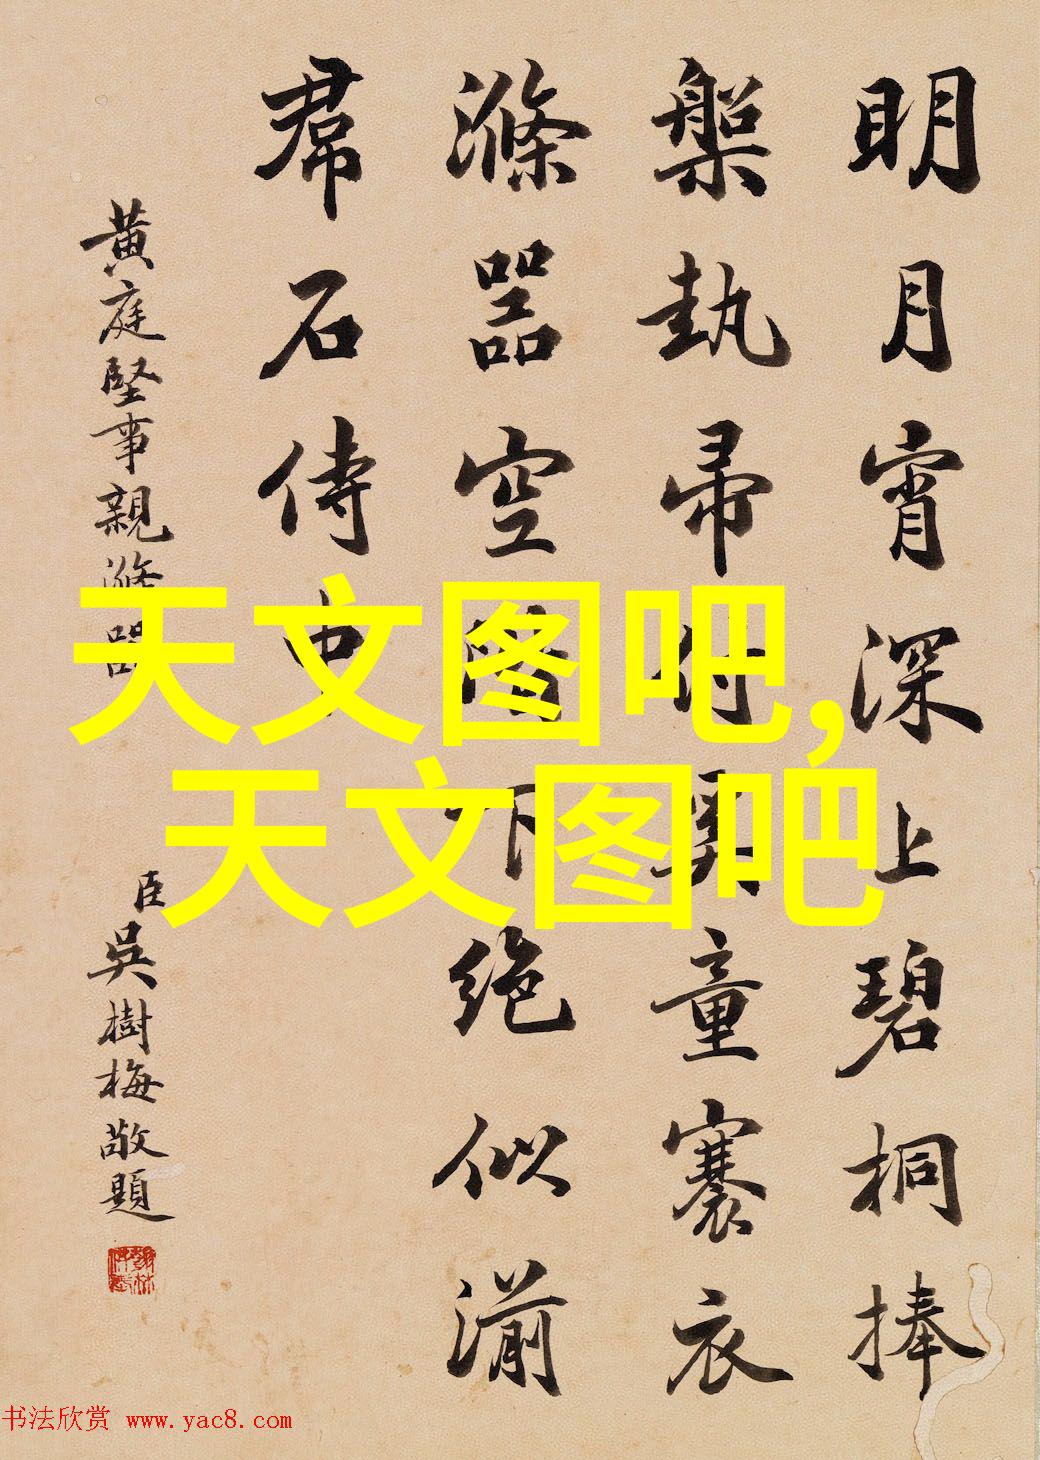 明月宵深上碧桐捧
槃執帚付奚童褰衣
滌器空階下絕似湔
帬石侍中
黃庭堅事親滌器
臣吳樹梅敬題
天文图吧,
天文图吧
书法欣赏 www.yac8.com